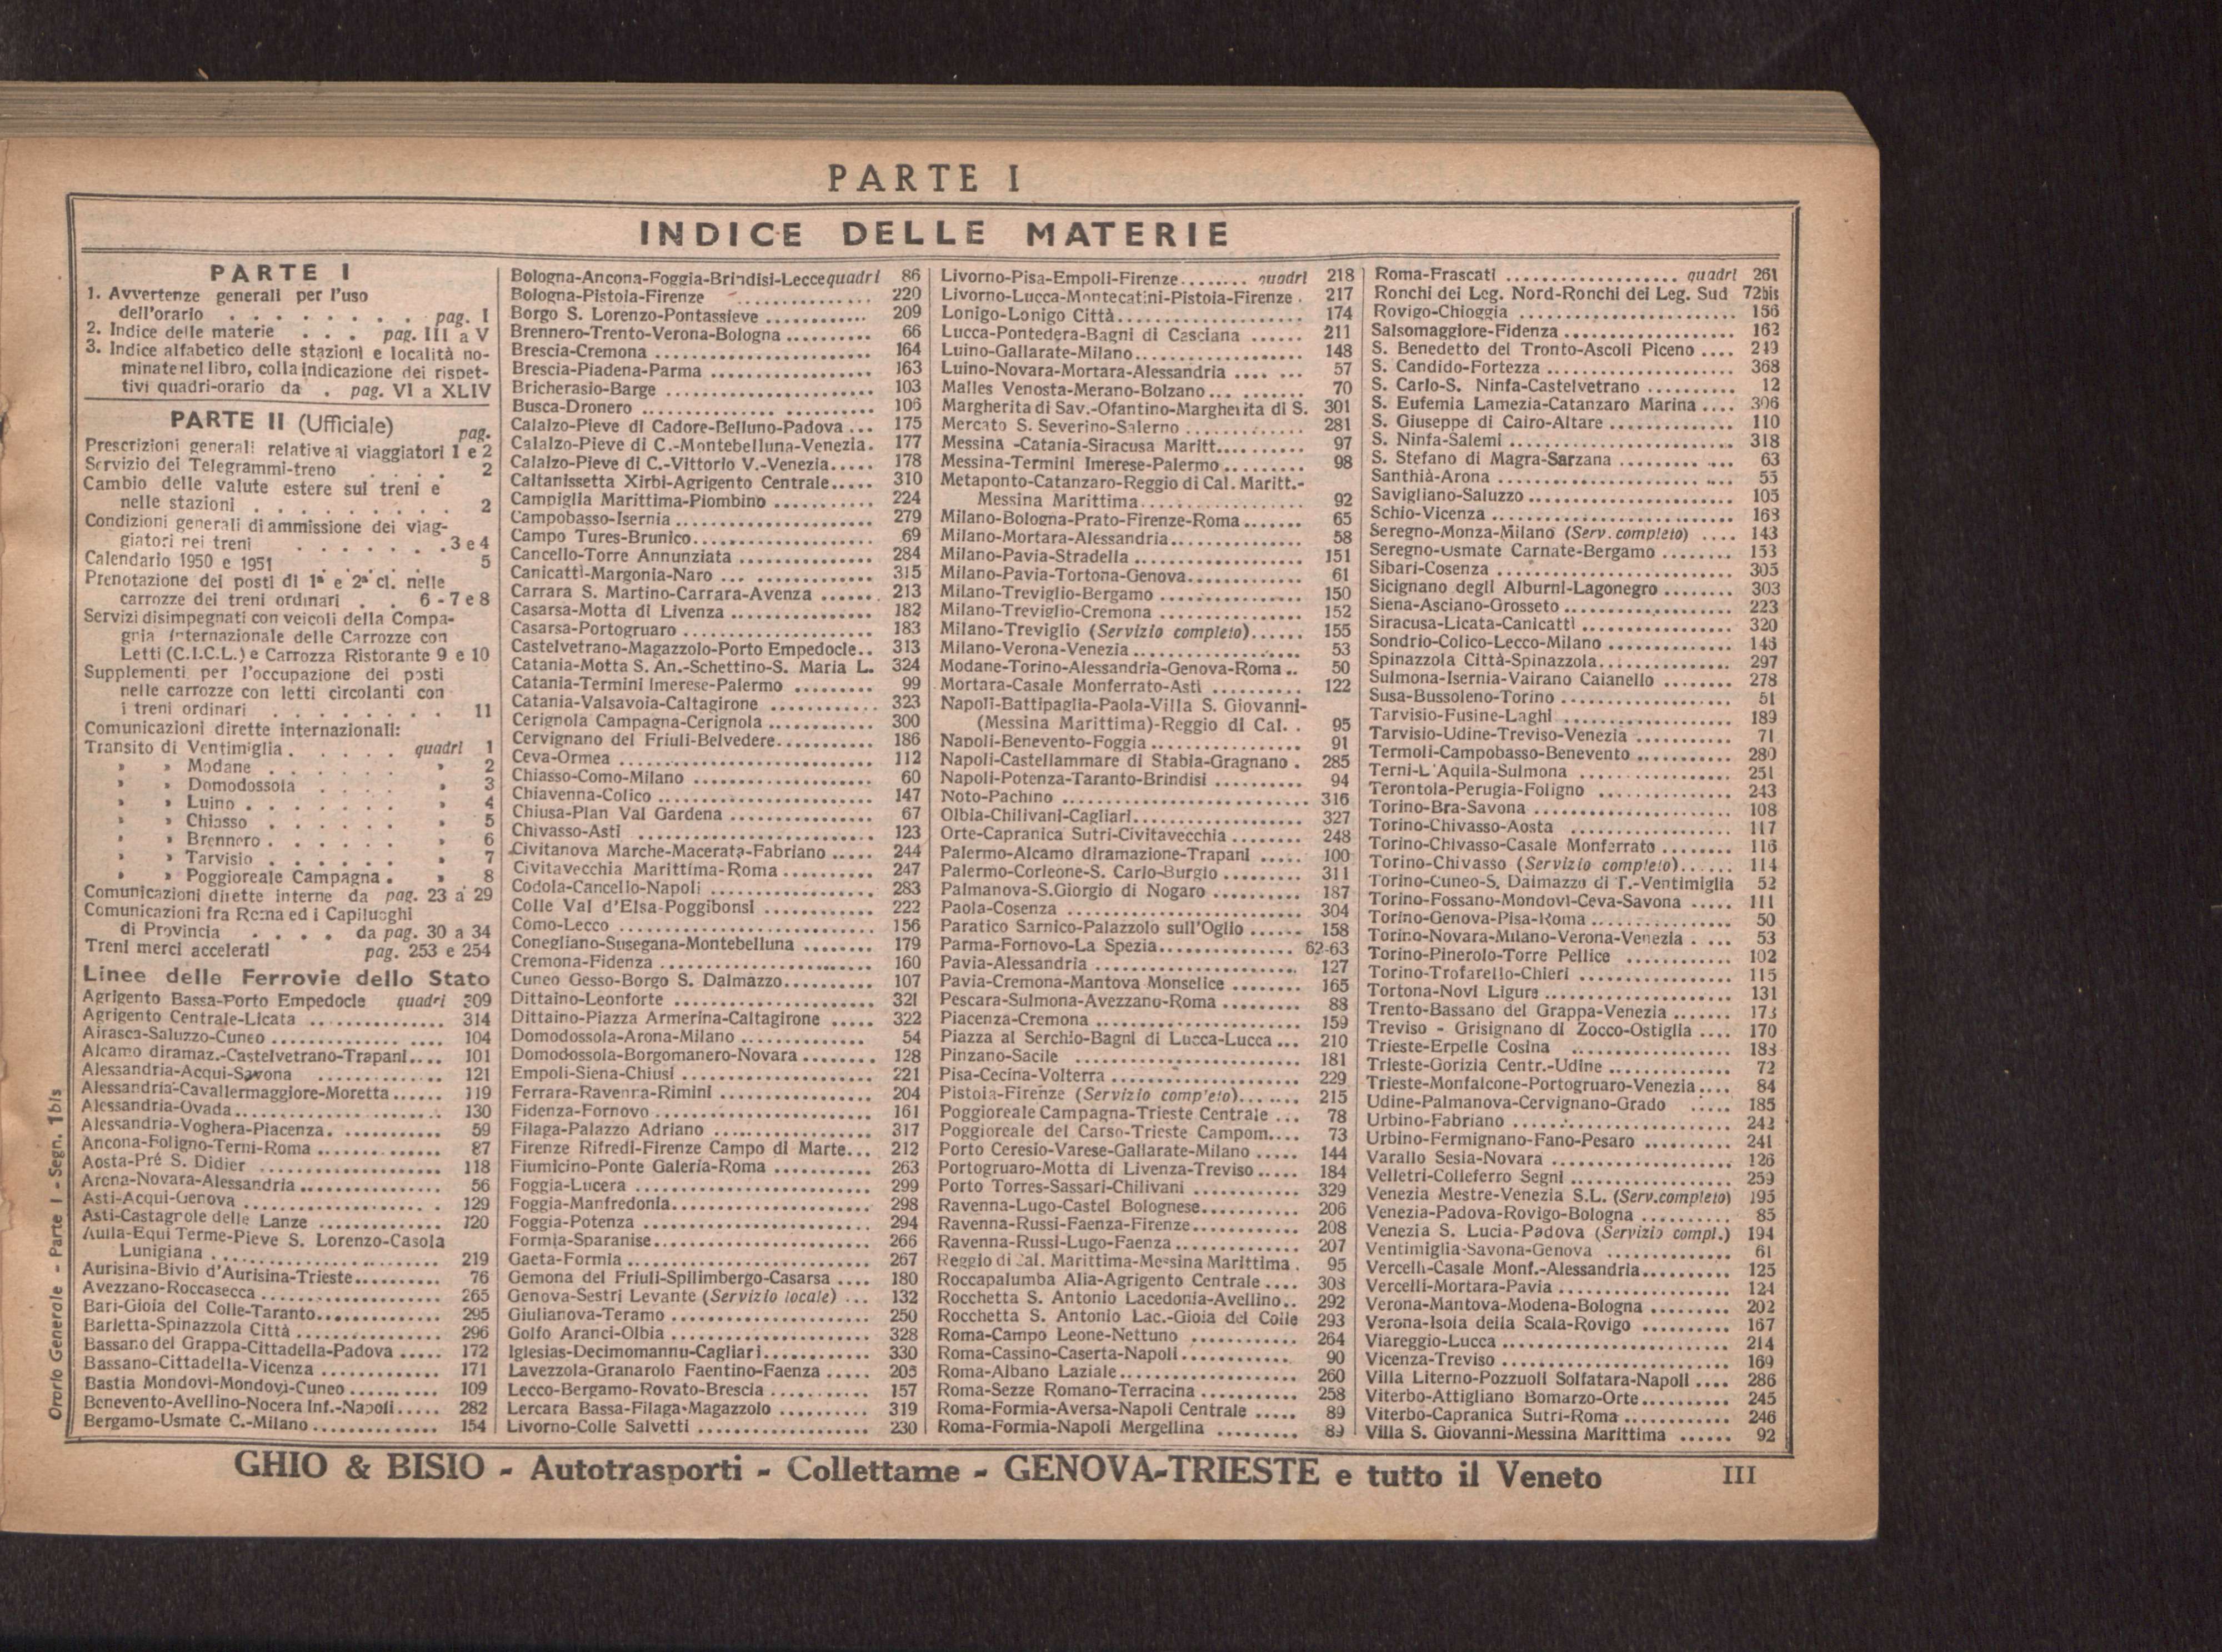 PARTE I
INDICE DELLE MATERIE
PARTE I
1. Avvertenze generali per l'uso
dell'orario . . . . . . . . pag. I
2. Indice delle materie . . . pag. III a V
3. Indice alfabetico delle stazioni e località no-
minate nel libro, colla indicazione dei rispet-
tivi quadri-orario da . pag. VI a XLIV
PARTE II (Ufficiale)
pag.
Prescrizioni generali relative ai viaggiatori 1 e 2
Servizio dei Telegrammi-treno . . . 2
Cambio delle valute estere sui treni e
nelle stazioni . . . . . . . . . 2
Condizioni generali di ammissione dei viag-
giatori nei treni . . . . . . . 3 e 4
Calendario 1950 e 1951 . . . . 5
Prenotazione dei posti di 1ª e 2ª cl. nelle
carrozze dei treni ordinari . . 6 - 7 e 8
Servizi disimpegnati con veicoli della Compa-
gnia Internazionale delle Carrozze con
Letti (C.I.C.L.) e Carrozza Ristorante 9 e 10
Supplementi per l'occupazione dei posti
nelle carrozze con letti circolanti con
i treni ordinari . . . . . . . . 11
Comunicazioni dirette internazionali:
Transito di Ventimiglia . . . . quadri 1
» » Modane . . . . . . » 2
» » Domodossola . . . . » 3
» » Luino . . . . . . . » 4
» » Chiasso . . . . . . » 5
» » Brennero . . . . . . » 6
» » Tarvisio . . . . . . » 7
» » Poggioreale Campagna . » 8
Comunicazioni dirette interne da pag. 23 a 29
Comunicazioni fra Roma ed i Capiluoghi
di Provincia . . . . da pag. 30 a 34
Treni merci accelerati pag. 253 e 254
Linee delle Ferrovie dello Stato
Agrigento Bassa-Porto Empedocle quadri 309
Agrigento Centrale-Licata .............. 314
Airasca-Saluzzo-Cuneo ............. .... 104
Alcamo diramaz.-Castelvetrano-Trapani.... 101
Alessandria-Acqui-Savona ............. 121
Alessandria-Cavallermaggiore-Moretta...... 119
Alessandria-Ovada...................... 130
Alessandria-Voghera-Piacenza. ........... 59
Ancona-Foligno-Terni-Roma ............. 87
Aosta-Pré S. Didier ................... 118
Arona-Novara-Alessandria ............... 56
Asti-Acqui-Genova .................... 129
Asti-Castagnole delle Lanze ............. 120
Aulla-Equi Terme-Pieve S. Lorenzo-Casola
Lunigiana ....................... 219
Aurisina-Bivio d'Aurisina-Trieste.......... 76
Avezzano-Roccasecca ................... 265
Bari-Gioia del Colle-Taranto............. 295
Barletta-Spinazzola Città ............... 296
Bassano del Grappa-Cittadella-Padova ..... 172
Bassano-Cittadella-Vicenza ............. 171
Bastia Mondovì-Mondovì-Cuneo .......... 109
Benevento-Avellino-Nocera Inf.-Napoli..... 282
Bergamo-Usmate C.-Milano .............. 154
Bologna-Ancona-Foggia-Brindisi-Lecce quadri 86
Bologna-Pistoia-Firenze .............. 220
Borgo S. Lorenzo-Pontassieve ............ 209
Brennero-Trento-Verona-Bologna .......... 66
Brescia-Cremona ...................... 164
Brescia-Piadena-Parma ................. 163
Bricherasio-Barge ...................... 103
Busca-Dronero ........................ 106
Calalzo-Pieve di Cadore-Belluno-Padova ... 175
Calalzo-Pieve di C.-Montebelluna-Venezia. 177
Calalzo-Pieve di C.-Vittorio V.-Venezia..... 178
Caltanissetta Xirbi-Agrigento Centrale..... 310
Campiglia Marittima-Piombino ........... 224
Campobasso-Isernia .................... 279
Campo Tures-Brunico................... 69
Cancello-Torre Annunziata .............. 284
Canicattì-Margonia-Naro ... ............ 315
Carrara S. Martino-Carrara-Avenza ...... 213
Casarsa-Motta di Livenza ............... 182
Casarsa-Portogruaro ................... 183
Castelvetrano-Magazzolo-Porto Empedocle.. 313
Catania-Motta S. An.-Schettino-S. Maria L. 324
Catania-Termini Imerese-Palermo ......... 99
Catania-Valsavoia-Caltagirone ............ 323
Cerignola Campagna-Cerignola ............ 300
Cervignano del Friuli-Belvedere.......... 186
Ceva-Ormea .......................... 112
Chiasso-Como-Milano .................. 60
Chiavenna-Colico ...................... 147
Chiusa-Plan Val Gardena ............... 67
Chivasso-Asti ........................ 123
Civitanova Marche-Macerata-Fabriano ..... 244
Civitavecchia Marittima-Roma .......... 247
Codola-Cancello-Napoli ................. 283
Colle Val d'Elsa-Poggibonsi ............ 222
Como-Lecco .......................... 156
Conegliano-Susegana-Montebelluna ........ 179
Cremona-Fidenza ...................... 160
Cuneo Gesso-Borgo S. Dalmazzo.......... 107
Dittaino-Leonforte .................... 321
Dittaino-Piazza Armerina-Caltagirone ..... 322
Domodossola-Arona-Milano .............. 54
Domodossola-Borgomanero-Novara ........ 128
Empoli-Siena-Chiusi ................... 221
Ferrara-Ravenna-Rimini ................ 204
Fidenza-Fornovo ...................... 161
Filaga-Palazzo Adriano ................. 317
Firenze Rifredi-Firenze Campo di Marte... 212
Fiumicino-Ponte Galeria-Roma ........... 263
Foggia-Lucera ........................ 299
Foggia-Manfredonia.................... 298
Foggia-Potenza ....................... 294
Formia-Sparanise...................... 266
Gaeta-Formia ......................... 267
Gemona del Friuli-Spilimbergo-Casarsa .... 180
Genova-Sestri Levante (Servizio locale) ... 132
Giulianova-Teramo .................... 250
Golfo Aranci-Olbia .................... 328
Iglesias-Decimomannu-Cagliari............ 330
Lavezzola-Granarolo Faentino-Faenza ..... 205
Lecco-Bergamo-Rovato-Brescia ........... 157
Lercara Bassa-Filaga-Magazzolo .......... 319
Livorno-Colle Salvetti .................. 230
Livorno-Pisa-Empoli-Firenze........ quadri 218
Livorno-Lucca-Montecatini-Pistoia-Firenze . 217
Lonigo-Lonigo Città.................... 174
Lucca-Pontedera-Bagni di Casciana ...... 211
Luino-Gallarate-Milano.................. 148
Luino-Novara-Mortara-Alessandria .... ... 57
Malles Venosta-Merano-Bolzano... ....... 70
Margherita di Sav.-Ofantino-Margherita di S. 301
Mercato S. Severino-Salerno ............. 281
Messina -Catania-Siracusa Maritt.......... 97
Messina-Termini Imerese-Palermo ......... 98
Metaponto-Catanzaro-Reggio di Cal. Maritt.-
Messina Marittima................. 92
Milano-Bologna-Prato-Firenze-Roma....... 65
Milano-Mortara-Alessandria.............. 58
Milano-Pavia-Stradella ................. 151
Milano-Pavia-Tortona-Genova............ 61
Milano-Treviglio-Bergamo ............... 150
Milano-Treviglio-Cremona ............... 152
Milano-Treviglio (Servizio completo)...... 155
Milano-Verona-Venezia ................. 53
Modane-Torino-Alessandria-Genova-Roma .. 50
Mortara-Casale Monferrato-Asti .......... 122
Napoli-Battipaglia-Paola-Villa S. Giovanni-
(Messina Marittima)-Reggio di Cal. . 95
Napoli-Benevento-Foggia ................ 91
Napoli-Castellammare di Stabia-Gragnano . 285
Napoli-Potenza-Taranto-Brindisi .......... 94
Noto-Pachino ......................... 316
Olbia-Chilivani-Cagliari................. 327
Orte-Capranica Sutri-Civitavecchia ........ 248
Palermo-Alcamo diramazione-Trapani ..... 100
Palermo-Corleone-S. Carlo-Burgio ........ 311
Palmanova-S.Giorgio di Nogaro .......... 187
Paola-Cosenza ........................ 304
Paratico Sarnico-Palazzolo sull'Oglio ...... 158
Parma-Fornovo-La Spezia............... 62-63
Pavia-Alessandria ..................... 127
Pavia-Cremona-Mantova Monselice ........ 165
Pescara-Sulmona-Avezzano-Roma ......... 88
Piacenza-Cremona ..................... 159
Piazza al Serchio-Bagni di Lucca-Lucca ... 210
Pinzano-Sacile ....................... 181
Pisa-Cecina-Volterra ................... 229
Pistoia-Firenze (Servizio completo)........ 215
Poggioreale Campagna-Trieste Centrale ... 78
Poggioreale del Carso-Trieste Campom.... 73
Porto Ceresio-Varese-Gallarate-Milano ..... 144
Portogruaro-Motta di Livenza-Treviso ..... 184
Porto Torres-Sassari-Chilivani ........... 329
Ravenna-Lugo-Castel Bolognese.......... 206
Ravenna-Russi-Faenza-Firenze............ 208
Ravenna-Russi-Lugo-Faenza ............. 207
Reggio di Cal. Marittima-Messina Marittima . 95
Roccapalumba Alia-Agrigento Centrale .... 308
Rocchetta S. Antonio Lacedonia-Avellino.. 292
Rocchetta S. Antonio Lac.-Gioia del Colle 293
Roma-Campo Leone-Nettuno ........... 264
Roma-Cassino-Caserta-Napoli............ 90
Roma-Albano Laziale................... 260
Roma-Sezze Romano-Terracina ........... 258
Roma-Formia-Aversa-Napoli Centrale ..... 89
Roma-Formia-Napoli Mergellina ......... 89
Roma-Frascati .................. quadri 261
Ronchi dei Leg. Nord-Ronchi dei Leg. Sud 72bis
Rovigo-Chioggia ...................... 166
Salsomaggiore-Fidenza ................. 162
S. Benedetto del Tronto-Ascoli Piceno .... 249
S. Candido-Fortezza ................... 368
S. Carlo-S. Ninfa-Castelvetrano .......... 12
S. Eufemia Lamezia-Catanzaro Marina .... 306
S. Giuseppe di Cairo-Altare ............. 110
S. Ninfa-Salemi ....................... 318
S. Stefano di Magra-Sarzana ......... .... 63
Santhià-Arona ........................ 55
Savigliano-Saluzzo ..................... 105
Schio-Vicenza ........................ 168
Seregno-Monza-Milano (Serv. completo) .... 143
Seregno-Usmate Carnate-Bergamo ........ 153
Sibari-Cosenza ....................... 305
Sicignano degli Alburni-Lagonegro ........ 303
Siena-Asciano-Grosseto ................. 223
Siracusa-Licata-Canicattì ................ 320
Sondrio-Colico-Lecco-Milano ............. 146
Spinazzola Città-Spinazzola.............. 297
Sulmona-Isernia-Vairano Caianello ........ 278
Susa-Bussoleno-Torino .................. 51
Tarvisio-Fusine-Laghi .................. 189
Tarvisio-Udine-Treviso-Venezia .......... 71
Termoli-Campobasso-Benevento ........... 280
Terni-L'Aquila-Sulmona ................ 251
Terontola-Perugia-Foligno .............. 243
Torino-Bra-Savona .................... 108
Torino-Chivasso-Aosta ................. 117
Torino-Chivasso-Casale Monferrato ........ 116
Torino-Chivasso (Servizio completo)...... 114
Torino-Cuneo-S. Dalmazzo di T.-Ventimiglia 52
Torino-Fossano-Mondovì-Ceva-Savona ..... 111
Torino-Genova-Pisa-Roma ............... 50
Torino-Novara-Milano-Verona-Venezia . .... 53
Torino-Pinerolo-Torre Pellice ........... 102
Torino-Trofarello-Chieri ................ 115
Tortona-Novi Ligure ................... 131
Trento-Bassano del Grappa-Venezia ....... 173
Treviso - Grisignano di Zocco-Ostiglia .... 170
Trieste-Erpelle Cosina ................. 188
Trieste-Gorizia Centr.-Udine ............. 72
Trieste-Monfalcone-Portogruaro-Venezia.... 84
Udine-Palmanova-Cervignano-Grado ..... 185
Urbino-Fabriano ...................... 242
Urbino-Fermignano-Fano-Pesaro .......... 241
Varallo Sesia-Novara ................... 126
Velletri-Colleferro Segni ................ 259
Venezia Mestre-Venezia S.L. (Serv.completo) 195
Venezia-Padova-Rovigo-Bologna .......... 85
Venezia S. Lucia-Padova (Servizio compl.) 194
Ventimiglia-Savona-Genova ............. 61
Vercelli-Casale Monf.-Alessandria.......... 125
Vercelli-Mortara-Pavia .................. 124
Verona-Mantova-Modena-Bologna ......... 202
Verona-Isola della Scala-Rovigo .......... 167
Viareggio-Lucca ....................... 214
Vicenza-Treviso ....................... 169
Villa Literno-Pozzuoli Solfatara-Napoli .... 286
Viterbo-Attigliano Bomarzo-Orte.......... 245
Viterbo-Capranica Sutri-Roma ............ 246
Villa S. Giovanni-Messina Marittima ...... 92
Orario Generale - Parte I - Segn. 1bis
GHIO & BISIO - Autotrasporti - Collettame - GENOVA-TRIESTE e tutto il Veneto
III